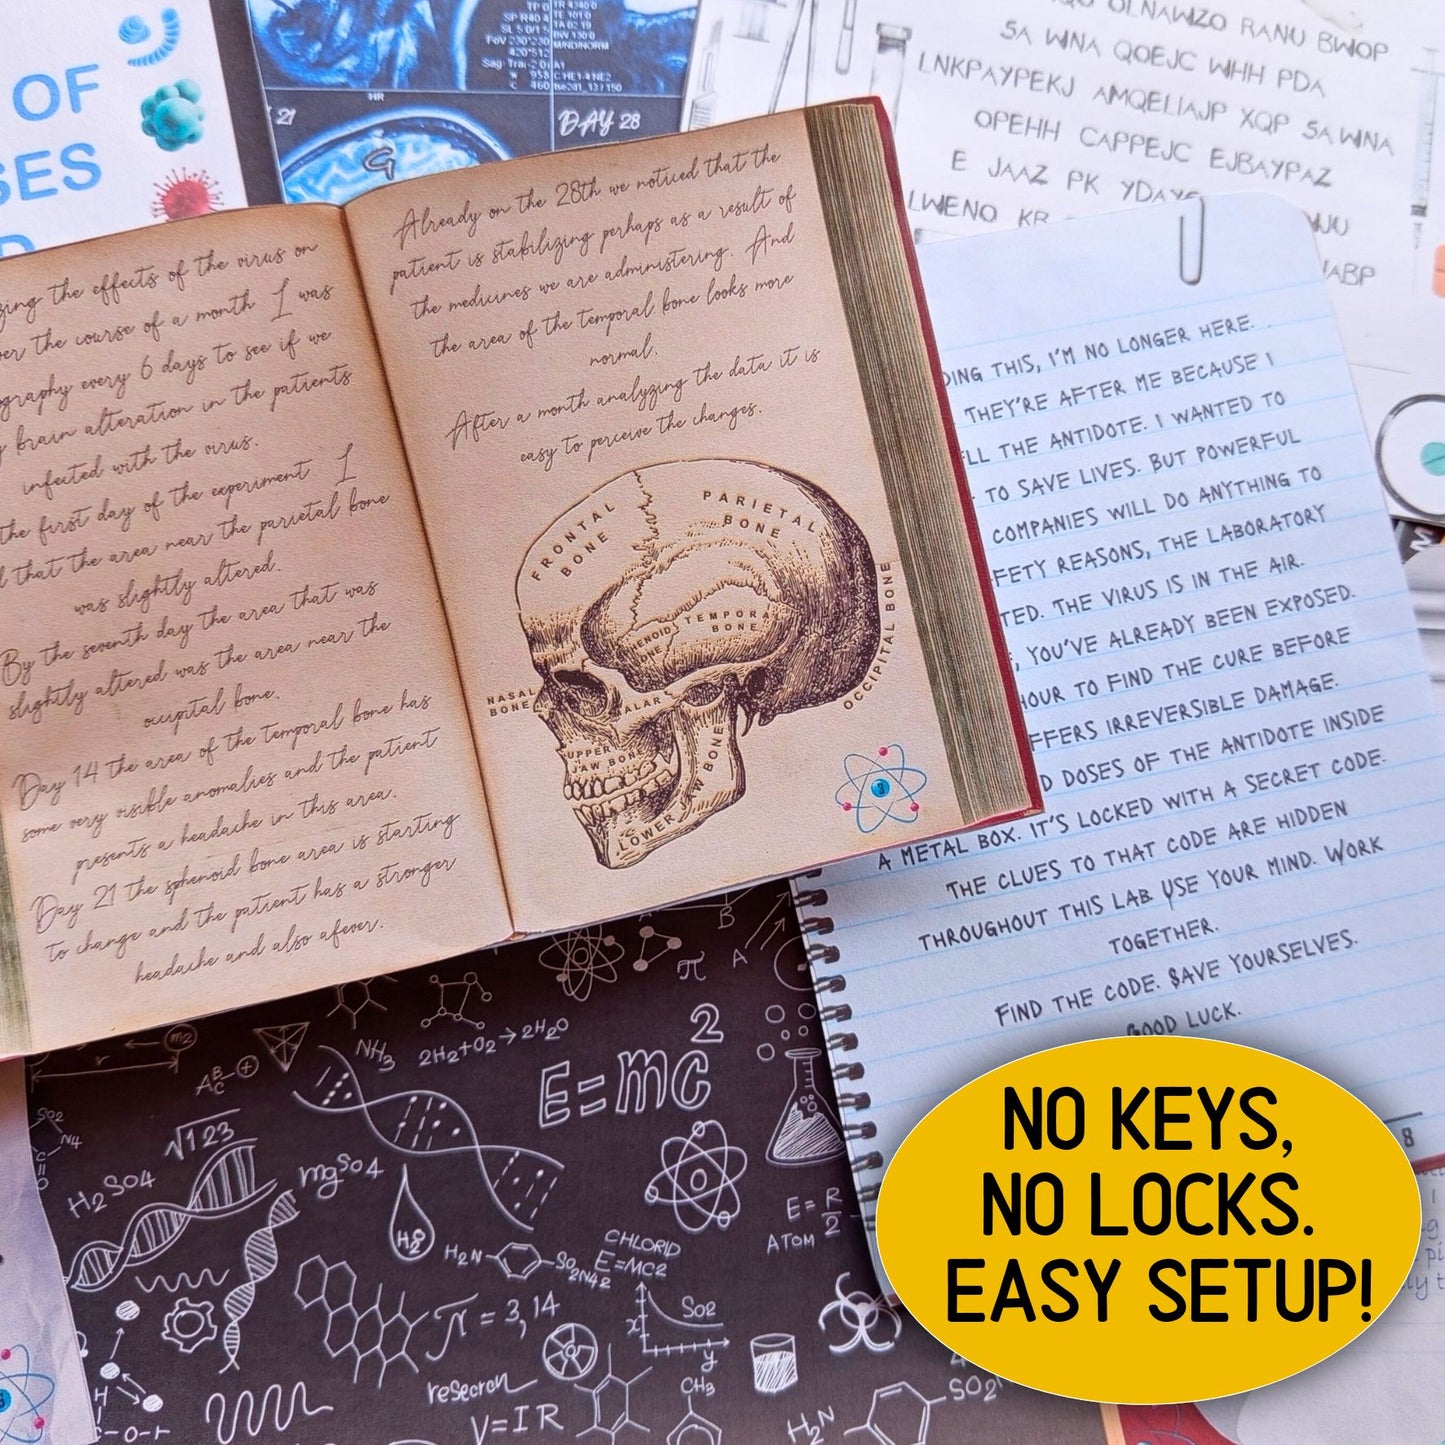 OF
SES
D
TP 0
SP R40 4
SL 5.0/1.5
FoV 230*230
420*512
Sag: Tra-2.0
W 958
C 460
TR 4340.0
TE 101.0
TA 02:19
BW 130.0
M/ND/NORM
A1
C:HE1-4 NE2
HR
21
DAY 28
G
OLNAWZO RANU BWIOP
SA WNA QOEJC WHH PDA
LNKPAYPEKJ AMQELIAJP XQP SA WNA
OPEHH CAPPEJC EJBAYPAZ
E JAAZ PK
LWENO
zing the effects of the virus on
ver the course of a month I was
ography every 6 days to see if we
y brain alteration in the patients
infected with the virus.
the first day of the experiment I
d that the area near the parietal bone
was slightly altered.
By the seventh day the area that was
slightly altered was the area near the
occipital bone.
Day 14 the area of the temporal bone has
some very visible anomalies and the patient
presents a headache in this area.
Day 21 the sphenoid bone area is starting
to change and the patient has a stronger
headache and also afever.
Already on the 28th we noticed that the
patient is stabilizing perhaps as a result of
the medicines we are administering. And
the area of the temporal bone looks more
normal.
After a month analyzing the data it is
easy to perceive the changes.
FRONTAL
BONE
PARIETAL
BONE
TEMPORA
BONE
HENOID
NE
OCCIPITAL BONE
NASAL
BONE
ALAR
UPPER
JAW BONE
LOWER JAW BONE
3
DING THIS, I'M NO LONGER HERE.
THEY'RE AFTER ME BECAUSE I
LL THE ANTIDOTE. I WANTED TO
TO SAVE LIVES. BUT POWERFUL
COMPANIES WILL DO ANYTHING TO
FETY REASONS, THE LABORATORY
TED. THE VIRUS IS IN THE AIR.
, YOU'VE ALREADY BEEN EXPOSED.
HOUR TO FIND THE CURE BEFORE
FFERS IRREVERSIBLE DAMAGE.
D DOSES OF THE ANTIDOTE INSIDE
A METAL BOX. IT'S LOCKED WITH A SECRET CODE.
THE CLUES TO THAT CODE ARE HIDDEN
THROUGHOUT THIS LAB. USE YOUR MIND. WORK
TOGETHER.
FIND THE CODE. SAVE YOURSELVES.
GOOD LUCK.
8
m2
r
AB-C
NH3
2H2+O2→2H2O
E=mc2
π
A
B
SO2
N4
√123
H2SO4
mgSO4
H2
H2N
SO2N42
CHLORID
E=MC2
E=R/2
ATOM
π=3,14
SO2
x
y
research
V=IR
CH3
H2N
SO2
H
C-O-H
NO KEYS,
NO LOCKS.
EASY SETUP!